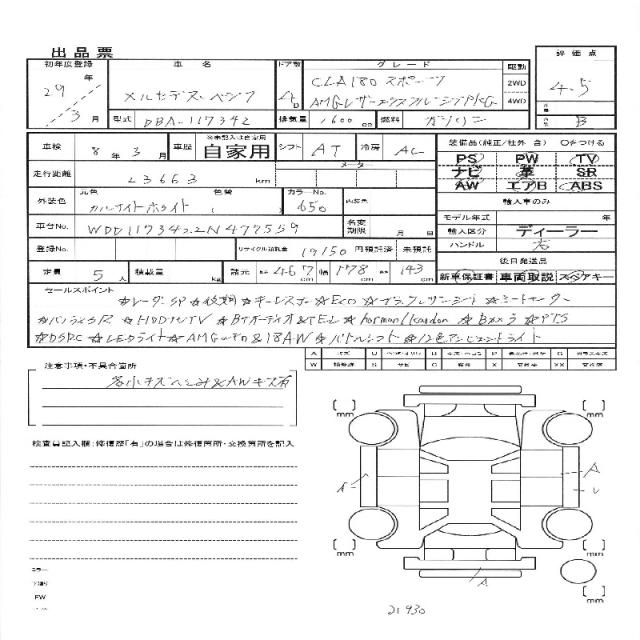 出品票
初年度登録 車名 ドア数 グレード 駆動 評価点
29年 メルセデス・ベンツ 4D CLA180 スポーツ 2WD 4.5
3月 型式 DBA-117342 AMGレザーエクスクルーシブPKG 4WD
排気量 1600 cc 燃料 ガソリン B
車検 8年3月 車歴 ※未記入は自家用 自家用 シフト AT 冷房 AC 装備品(純正/社外 含) ○をつける
走行距離 23663 km メーター PS PW TV
ナビ 革 SR
AW エアB ABS
外装色 元色 カルサイトホワイト ( ) 色替 カラーNo. 650 内装色 輸入車のみ
モデル年式 年
車台No. WDD1173422N477559 名変期限 月 日 輸入区分 ディーラー
登録No. リサイクル預託金 19150 円預託済 未預託 ハンドル 右
後日発送品
定員 5人 積載量 kg 諸元 長さ 467 幅 178 高さ 143 cm 新車保証書 車両取説 スペアキー
セールスポイント
☆レーダーSP☆後期☆キーレスゴー☆ECO☆ブラックレザーシート☆シートヒーター
☆パノラマSR ☆HDDナビTV ☆BTオーディオ&TEL☆harman/kardon ☆Bカメラ☆PTS
☆DSRC ☆LEDライト☆AMGエアロ&18AW☆パドルシフト☆12色アンビエントライト
注意事項・不具合箇所
各小キズヘコミ&AWキズ有
検査員記入欄:修復歴「有」の場合は修復箇所・交換箇所を記入
[ ] mm [ ] mm
A A
[ ] mm [ ] mm
A
[ ] mm
21930